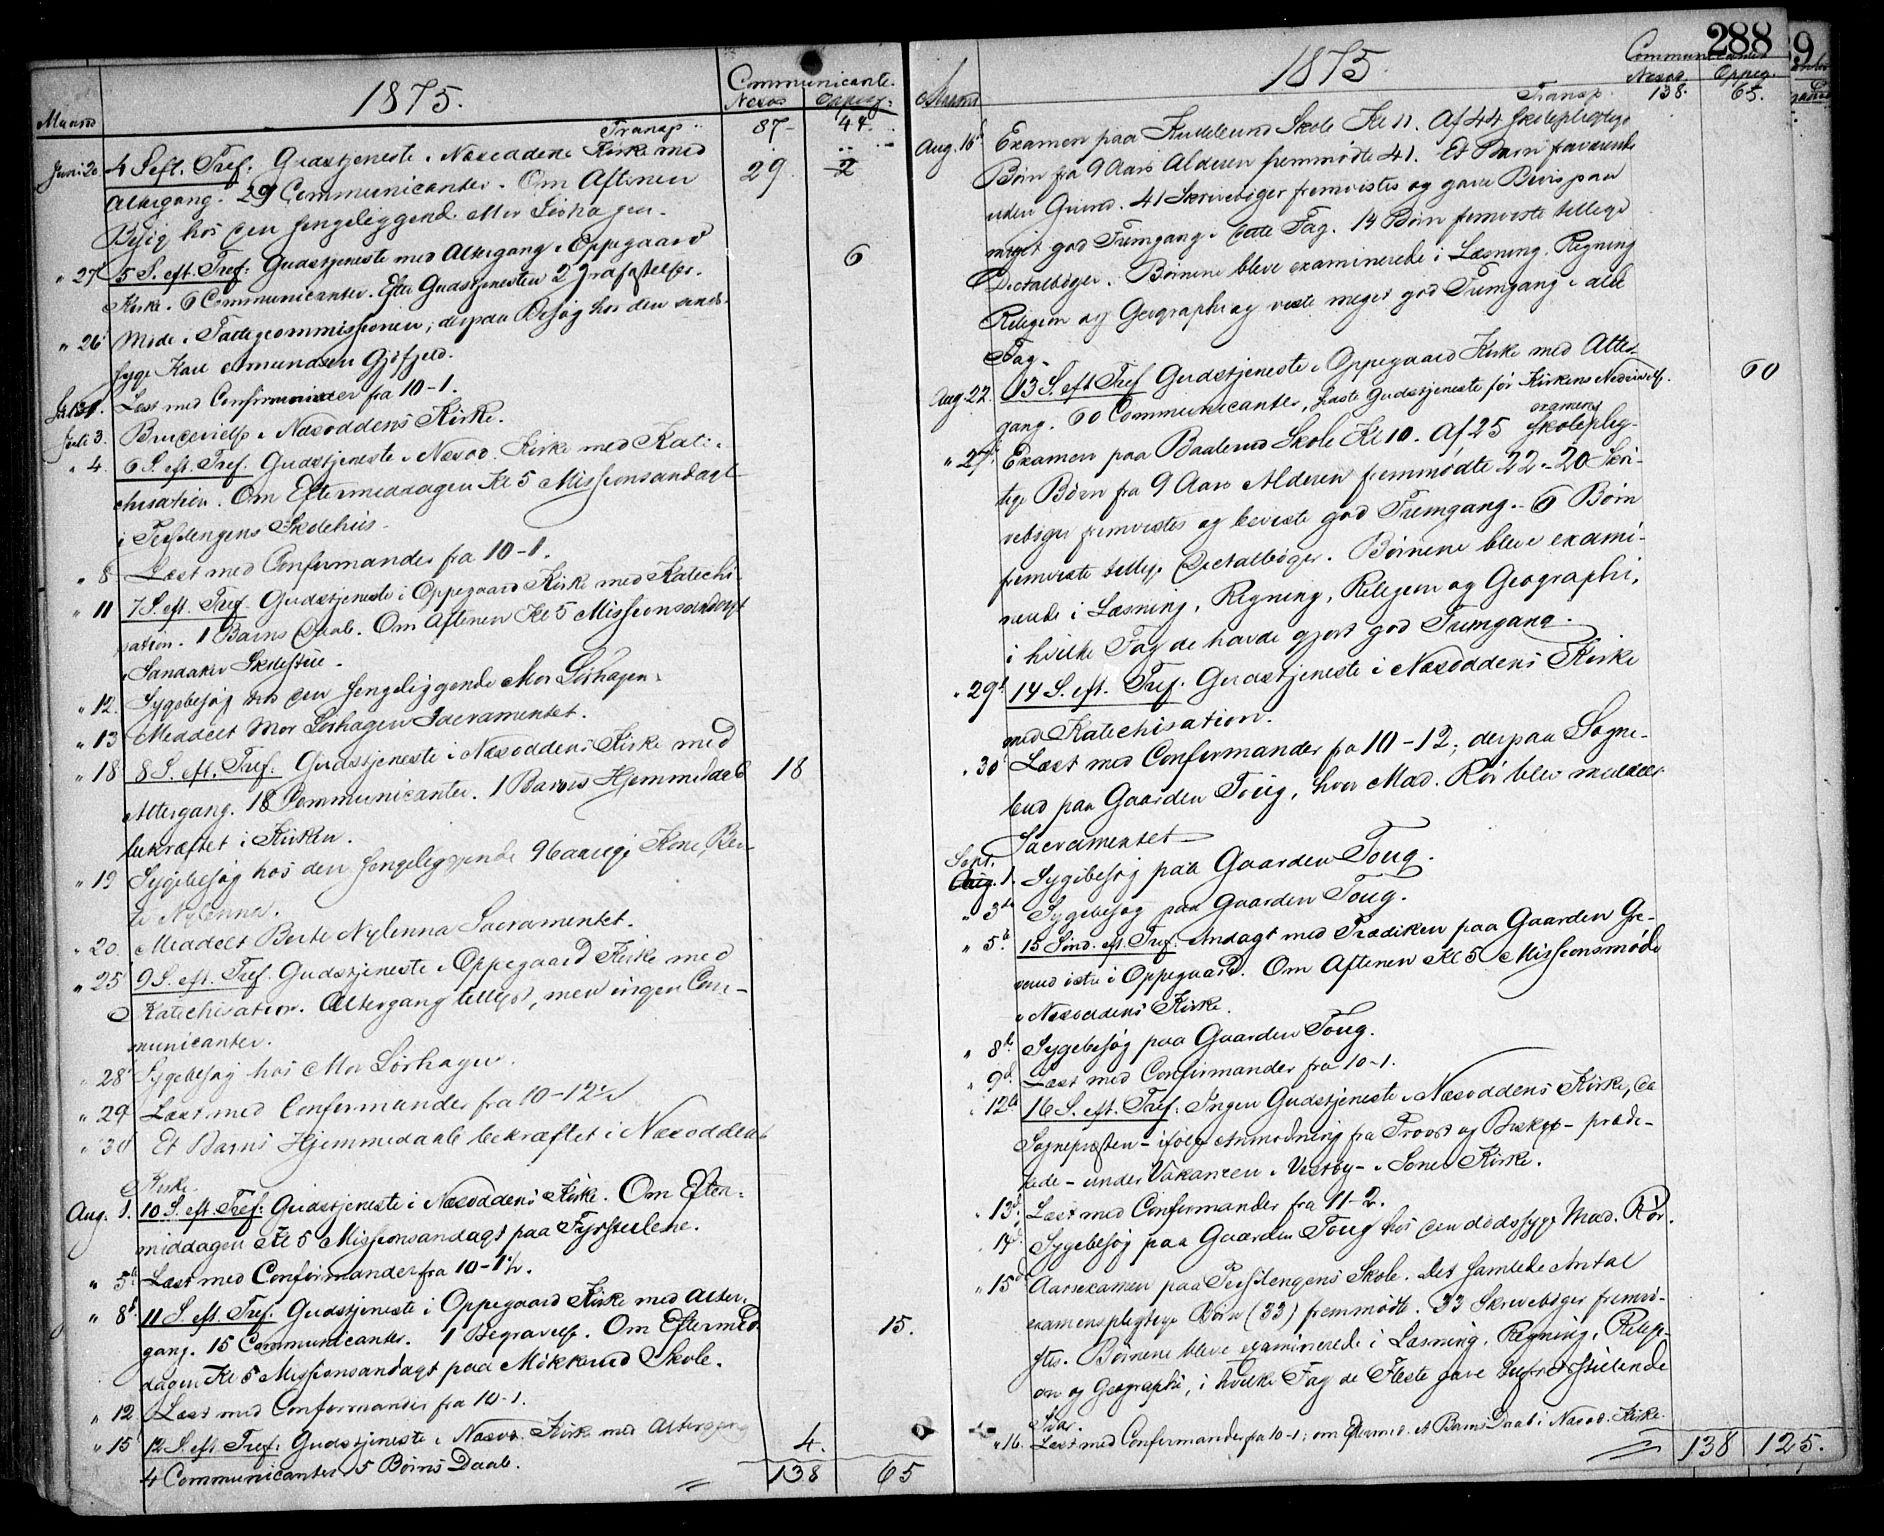 1875.
Communicante.
Maaned
Næsod
Oppeg.
Transp.
87
44
Juni 20
4 S. eft. Tref: Gudstjeneste i Næsoddens Kirke med
29
2
Altergang. 29 Communicanter. Om Aftenen
Besøg hos den sengeliggende Mor Sørhagen.
" 27
5 S. eft. Tref: Gudstjeneste med Altergang i Oppegaard
6
Kirke. 6 Communicanter. Efter Gudstjenesten 2 Jordfæstelser.
" 26
Møde i Fattigcommissionen; derpaa Besøg hos den sinds-
syge Kari Amundsen Gjøfjeld.
Læst med Confirmander fra 10-1.
Juli 3.
Brudevielse i Næsoddens Kirke.
" 4.
6 S. eft. Tref. Gudstjeneste i Næsod. Kirke med Kate-
chisation. Om Eftermiddagen Kl 5 Missionsandagt
i Præstengens Skolehus.
" 8
Læst med Confirmander fra 10-1.
" 11
7 S. eft. Tref. Gudstjeneste i Oppegaard Kirke med Katechi-
sation. 1 Barns Daab. Om Aftenen Kl 5 Missionsandagt
i Sandaker Skolestue.
" 12.
Sygebesøg hos den sengeliggende Mor Sørhagen.
" 13
Meddelt Mor Sørhagen Sacramentet.
" 18
8 S. eft. Tref: Gudstjeneste i Næsoddens Kirke med
Altergang. 18 Communicanter. 1 Barns Hjemmedaab
18
bekræftet i Kirken.
" 19
Sygebesøg hos den sengeliggende 96aarige Kone Ber-
te Nylenna.
" 20.
Meddelt Berte Nylenna Sacramentet.
" 25
9 S. eft. Tref. Gudstjeneste i Oppegaard Kirke med
Katechisation. Altergang tillyst, men ingen Com-
municanter.
" 28
Sygebesøg hos Mor Sørhagen.
" 29
Læst med Confirmander fra 10-12½
" 30
Et Barns Hjemmedaab bekræftet i Næsoddens
Kirke.
Aug. 1.
10 S. eft. Tref: Gudstjeneste i Næsoddens Kirke. Om Efter-
middagen Kl 5 Missionsandagt paa Fjrsteilene.
" 5
Læst med Confirmander fra 10-1½.
" 8
11 S. eft. Tref. Gudstjeneste i Oppegaard Kirke med Alter-
gang. 15 Communicanter. 1 Begravelse. Om Eftermid-
15.
dagen Kl 5 Missionsandagt paa Møkkerud Skole.
" 12
Læst med Confirmander fra 10-1.
" 15
12 S. eft. Tref: Gudstjeneste i Næsod. Kirke med Altergang
4.
4 Communicanter. 5 Børns Daab.
138
65
288
1875.
Communicanter
Maaned
Næsod.
Oppeg.
Transp.
138.
65.
Aug. 16
Examen paa Skole Kl 11. Af 44 skolepligtige
Børn fra 9 Aars Alderen fremmødte 41. Et Barn fraværende
uden Grund. 41 Skrivebøger fremvistes og gave Bevis paa
meget god Fremgang i dette Fag. 14 Børn fremviste tillige
Dictatbøger. Børnene bleve examinerede i Læsning, Regning
Religion og Geographi og viste meget god Fremgang i alle
Fag.
Aug 22
13 S. eft Tref Gudstjeneste i Oppegaard Kirke med Alter-
60
gang. 60 Communicanter, sidste Gudstjeneste før Kirkens
examens
" 27
Examen paa Baalerud Skole Kl 10. Af 25 skoleplig-
tige Børn fra 9 Aars Alderen fremmødte 22. 20 Skri-
vebøger fremvistes og beviste god Fremgang. 6 Børn
fremviste tillige Dictatbøger. Børnene bleve exami-
nerede i Læsning, Regning, Religion og Geographi,
i hvilke Fag de havde gjort god Fremgang.
" 29
14 S. eft. Tref. Gudstjeneste i Næsoddens Kirke
med Katechisation.
" 30
Læst med Confirmander fra 10-12; derpaa Sogne-
bud paa Gaarden Toug, hvor Mad. Rør blev meddelt
Sacramentet
Sept.
Aug. 1.
Sygebesøg paa Gaarden Toug.
" 3
Sygebesøg paa Gaarden Toug.
" 5
15 Sönd. eft. Tref: Andagt med Prædiken paa Gaarden Gre-
verud østre i Oppegaard. Om Aftenen Kl 5 Missionsmøde
i Næsoddens Kirke.
" 8
Sygebesøg paa Gaarden Toug.
" 9
Læst med Confirmander fra 10-1.
" 12
16 S. eft. Tref: Ingen Gudstjeneste i Næsoddens Kirke, da
Sognepræsten - ifølge Anmodning fra Provst og Biskop - præde-
kede - under Vakancen i Vestby - i Soner Kirke.
" 13
Læst med Confirmander fra 11-2.
" 14
Sygebesøg paa Gaarden Toug hos den dødssyge Mad. Rør.
" 15
Aarsexamen paa Præstengens Skole. Det samlede Antal
examenspligtige Børn (33) fremmødte. 33 Skrivebøger fremvi-
stes. Børnene bleve examinerede i Læsning, Regning, Religi-
on og Geographi, i hvilke Fag de Fleste gave tilfredsstillende
Svar.
" 16.
Læst med Confirmander fra 10-1; om Eftermid. et Barns Daab i Næsod. Kirke.
138
125.